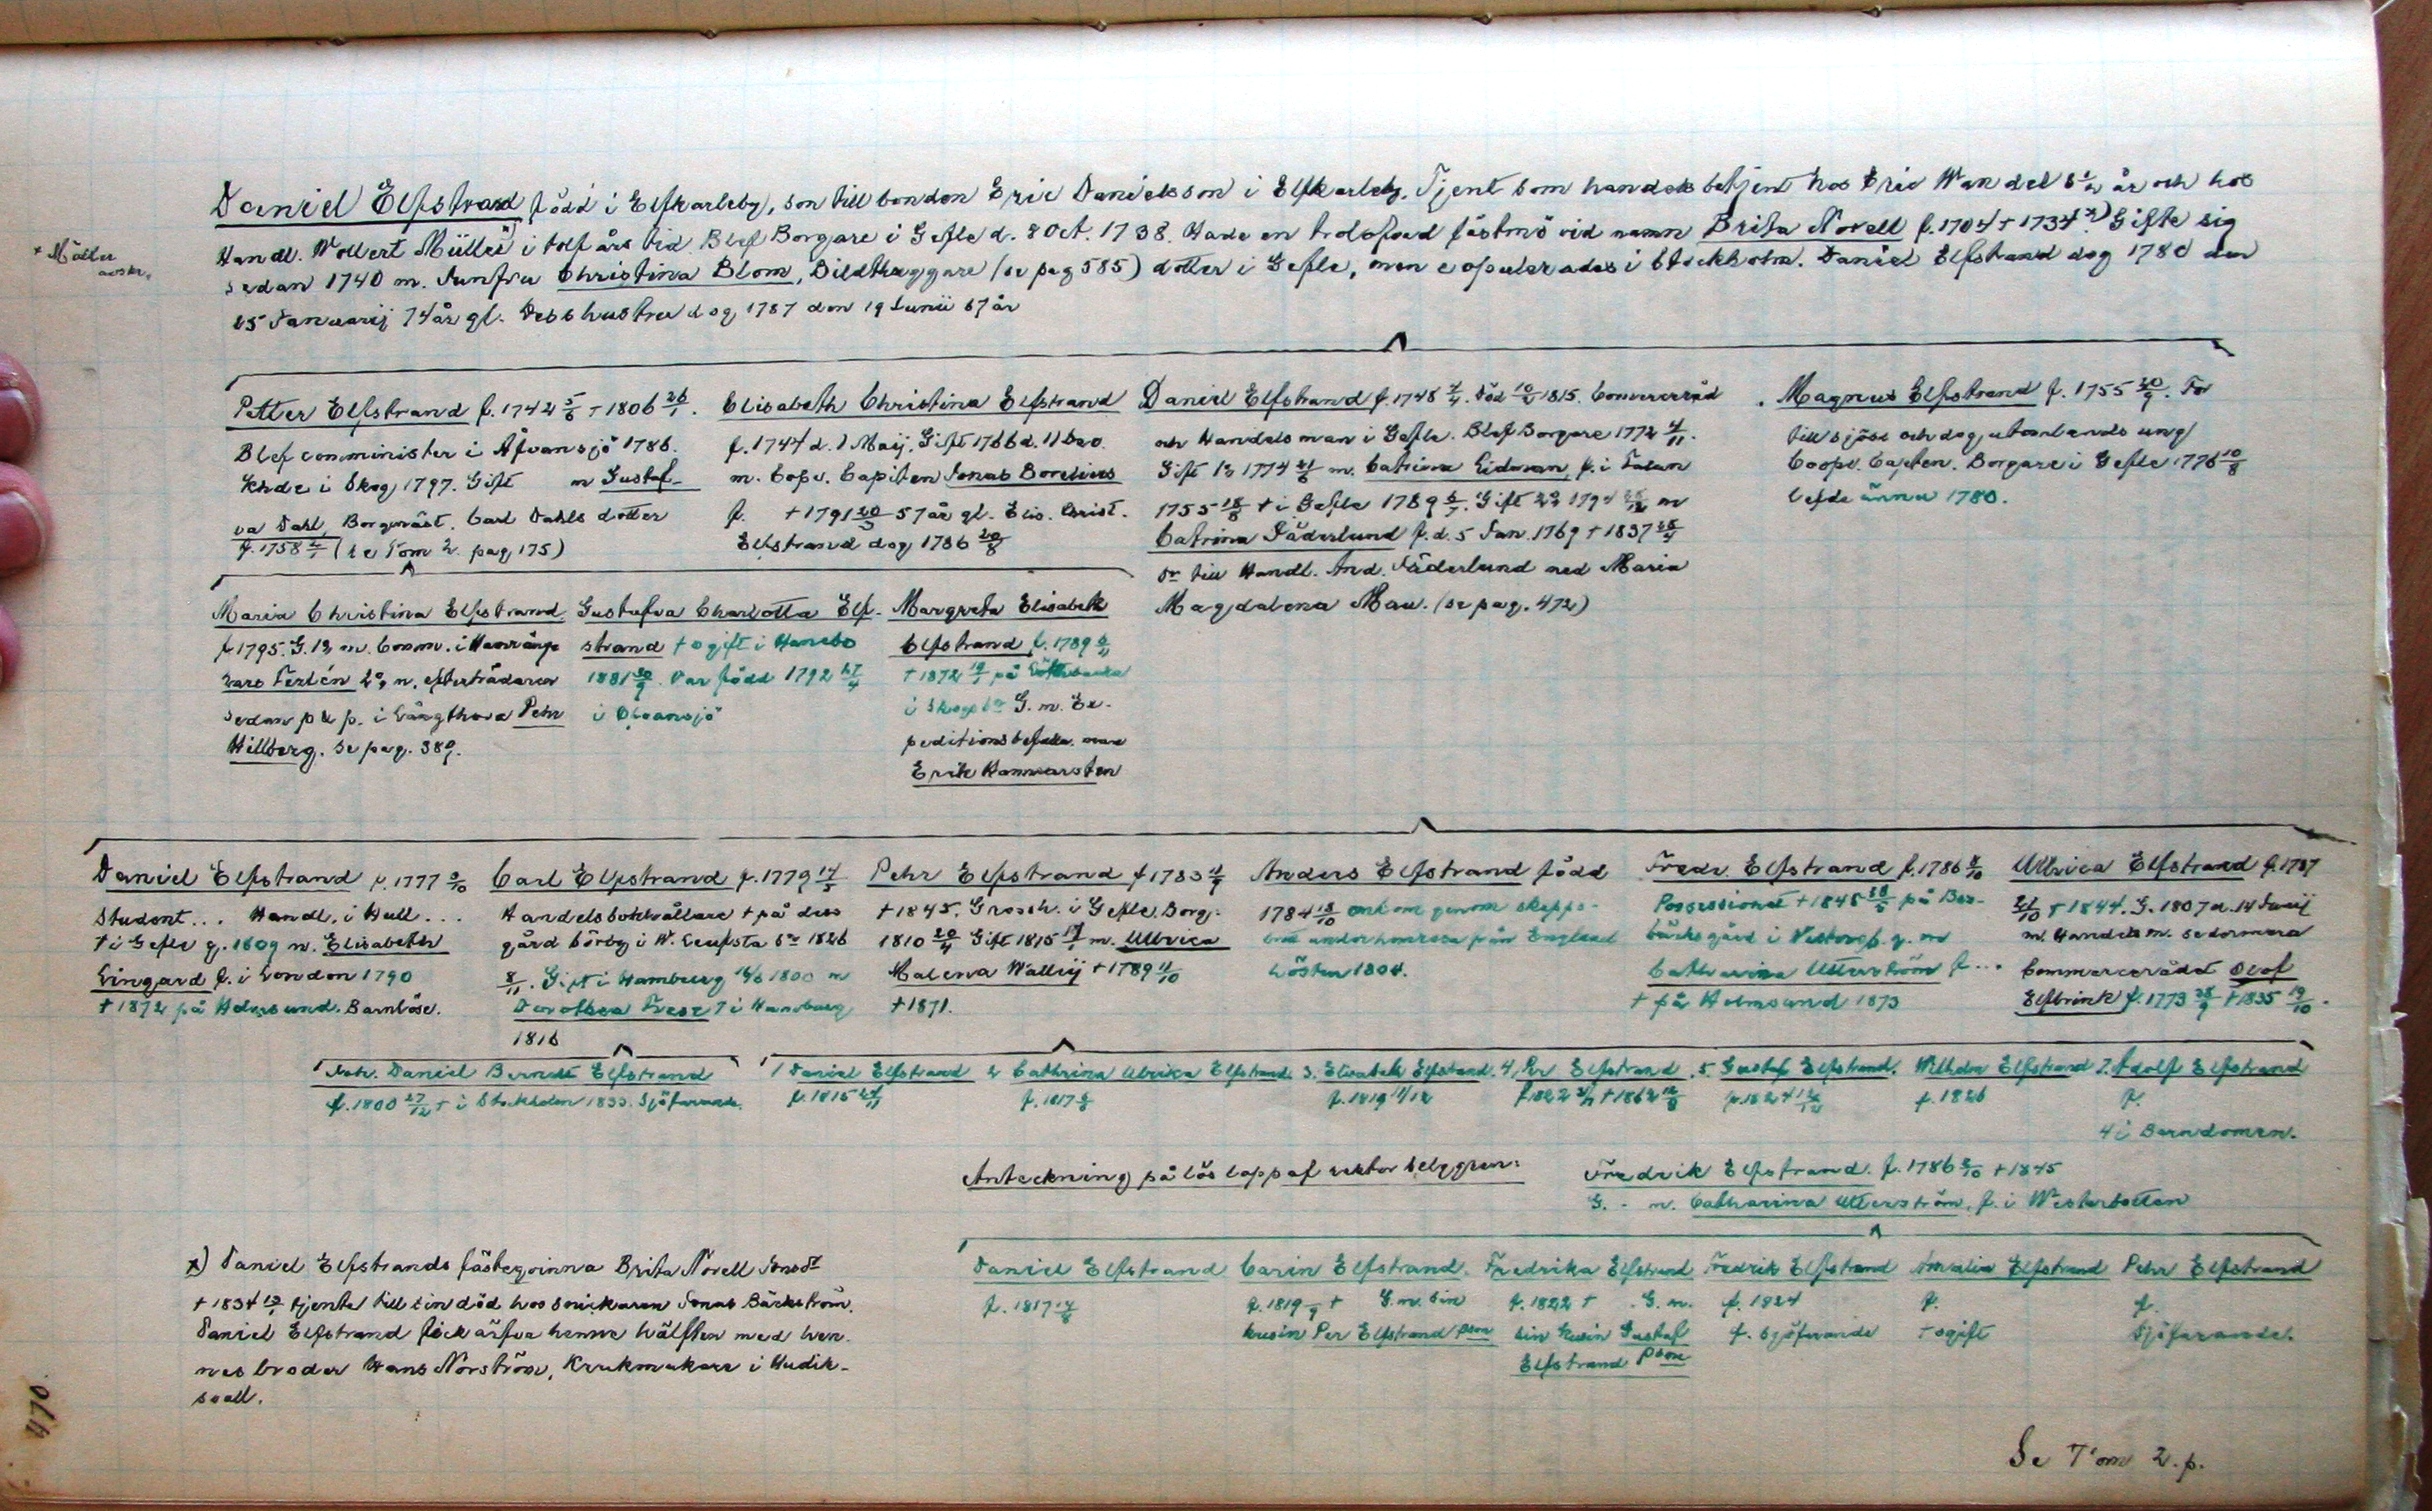 Daniel Elfstrand född i Elfkarleby, son till bonden Eric Danielsson i Elfkarleby. Tjent som handels betjent hos Eric Wandel 6½ år och hos
Handl. Wollert Müller i tolf års tid Blef Borgare i Gefle d. 8 Oct. 1738. Hade en trolofvad fästmö vid namn Brita Norell f. 1704 † 1734 x) Gifte sig
sedan 1740 m. Junfru Christina Blom, Bildthuggare (se pag 585) dotter i Gefle, men copulerades i Stockholm. Daniel Elfstrand dog 1780 den
25 Januarij 74 år gl. Dess hustru dog 1787 den 19 Junii 67 år
+ Möller
avskr.
Petter Elfstrand f. 1742 5/6 † 1806 26/1.
Blef comminister i Åfvansjö 1786.
Khde i Skog 1797. Gift m Gustaf-
va Dahl, Borgmäst. Carl Dahls dotter
f. 1758 (se Tom 2. pag 175)
Elisabeth Christina Elfstrand
f. 1744 d. 1 Maij. Gift 1766 d. 11 Dec.
m. Copv. Capiten Jonas Borelius
f. † 1791 57 år gl. Elis. Christ.
Elfstrand dog 1786 20/8
Daniel Elfstrand f. 1748. Död 10/2 1815. Commerceråd
och Handelsman i Gefle. Blef Borgare 1772 4/11.
Gift 1º 1774 m. Catrina Eidman, f. i Falun
1755 18/8 † i Gefle 1789. Gift 2º m
Catrina Söderlund f. d. 5 Jan. 1769 † 1837
Dr till Handl. And. Söderlund med Maria
Magdalena Mau. (se pag. 472)
Magnus Elfstrand f. 1755 20/9. For
till sjöss och dog utomlands ung
Coopv. Capten. Borgare i Gefle 1776 10/8
lefde ännu 1780.
Maria Christina Elfstrand
f 1795. G. 1º m. Comm. i Hamrånge
Lars Terlén 2º m. efterträdaren
sedan p & p. i Långthora Pehr
Hillberg. Se pag. 389.
Gustafva Charlotta Elf-
strand † ogift i Hanebo
1881 30/9. Var född 1792 27/4
i Åfvansjö
Margreta Elisabeth
Elfstrand f. 1789
† 1872 på
i Skogs G. m. Ex-
peditionsbefalln. man
Erik Hammarsten
Daniel Elfstrand f. 1777 9/10
Student... Handl. i Hull...
† i Gefle g. 1809 m. Elisabeth
Lingard f. i London 1790
† 1872 på Holmsund. Barnlöse.
Carl Elfstrand f. 1779
Handelsbokhållare † på dess
gård Sörby i W. Leufsta Sn 1826
8/11. Gift i Hamburg 1800 m
Dorothea Frese † i Hamburg
1816
Pehr Elfstrand f 1783 11/9
† 1845. Grossh. i Gefle. Borg.
1810 20/4 Gift 1815 m. Ullrica
Malena Wallij † 1789 11/10
† 1871.
Anders Elfstrand född
1784 18/10 omkom genom skepps-
brott under hemresa från England
hösten 1804.
Fredr. Elfstrand f. 1786 8/10
Possessionat † 1845 på Bac-
backsgård i g. m
Catharina Ullerström f...
† på Holmsund 1873
Ullrica Elfstrand f. 1787
21/10 † 1844. G. 1807 d. 14 Junij
m. Handelsm. sedermera
Commercerådet Olof
Elfbrink f. 1773 28/9 † 1835 19/10.
Joh. Daniel Berndt Elfstrand
f. 1800 27/12 † i Stockholm 1833. Sjöfarande.
1 Daniel Elfstrand
f. 1815
2 Cathrina Ulrica Elfstrand
f. 1817
3. Elisabeth Elfstrand.
f. 1819 11/12
4. Per Elfstrand
f 1822 † 1862
5. Gustaf Elfstrand.
f. 1824
Wilhelm Elfstrand
f. 1826
7. Adolf Elfstrand
f.
4 i Barndomen.
Anteckning på lös lapp af rektor Selggren:
Fredrik Elfstrand. f. 1786 8/10 † 1845
G. - m. Catharina Ullerström, f. i Westerbotten
Daniel Elfstrand
f. 1817
Carin Elfstrand.
f. 1819 † G. m. sin
kusin Per Elfstrand
Fredrika Elfstrand
f. 1822 † . G. m.
sin kusin Gustaf
Elfstrand
Fredrik Elfstrand
f. 1824
†. Sjöfarande
Amalia Elfstrand
f.
† ogift
Pehr Elfstrand
f.
Sjöfarande.
x) Daniel Elfstrands fästeqvinna Brita Norell Jonsdr
† 1834 tjente till sin död hos snickaren Jonas Bäckström.
Daniel Elfstrand fick ärfva henne hälften med hen-
nes broder Hans Norström, Krukmakare i Hudik-
svall.
470
Se Tom 2. p.